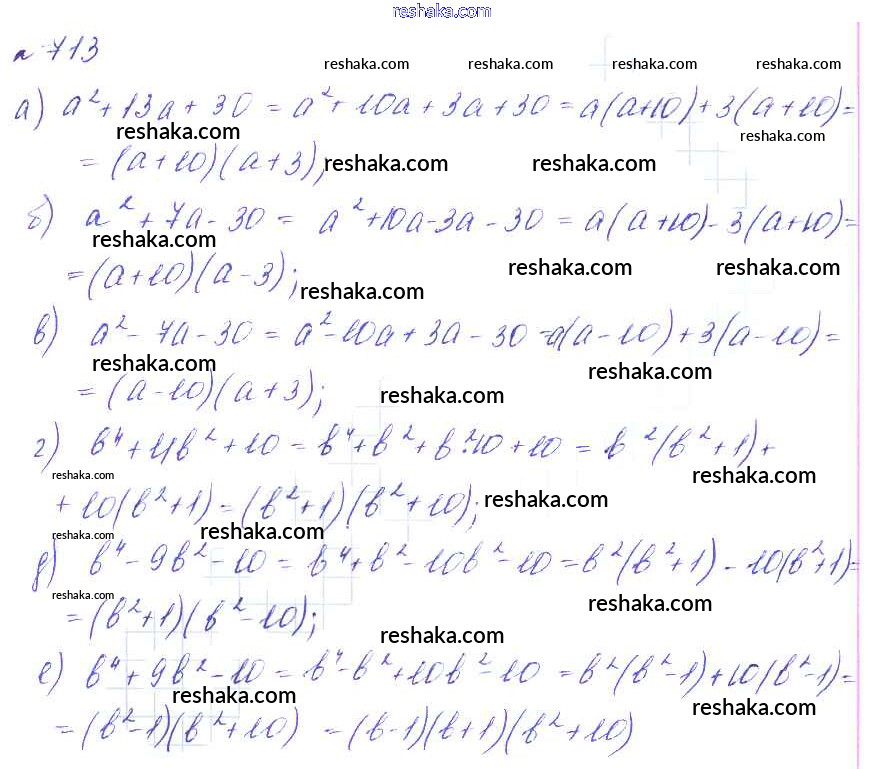 reshaka.com
№ 713
reshaka.com reshaka.com reshaka.com reshaka.com
а) a² + 13a + 30 = a² + 10a + 3a + 30 = a(a+10) + 3(a+10) =
reshaka.com reshaka.com
= (a+10)(a+3);
reshaka.com reshaka.com
б) a² + 7a - 30 = a² + 10a - 3a - 30 = a(a+10) - 3(a+10) =
reshaka.com reshaka.com reshaka.com
= (a+10)(a-3);
reshaka.com
в) a² - 7a - 30 = a² - 10a + 3a - 30 = a(a-10) + 3(a-10) =
reshaka.com reshaka.com
= (a-10)(a+3);
reshaka.com
г) b⁴ + 11b² + 10 = b⁴ + b² + b²·10 + 10 = b²(b²+1) +
reshaka.com reshaka.com
+ 10(b²+1) = (b²+1)(b²+10);
reshaka.com
reshaka.com reshaka.com
д) b⁴ - 9b² - 10 = b⁴ + b² - 10b² - 10 = b²(b²+1) - 10(b²+1) =
reshaka.com reshaka.com
= (b²+1)(b²-10);
reshaka.com
е) b⁴ + 9b² - 10 = b⁴ - b² + 10b² - 10 = b²(b²-1) + 10(b²-1) =
reshaka.com reshaka.com
= (b²-1)(b²+10) = (b-1)(b+1)(b²+10)